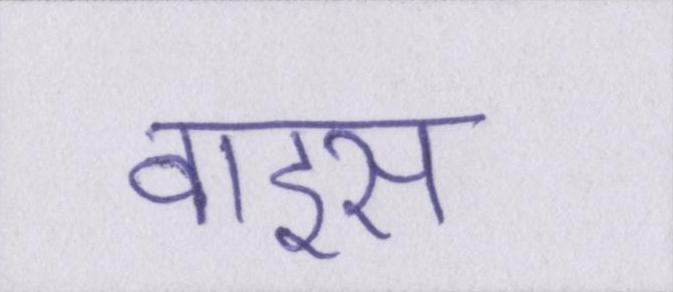 वाइस